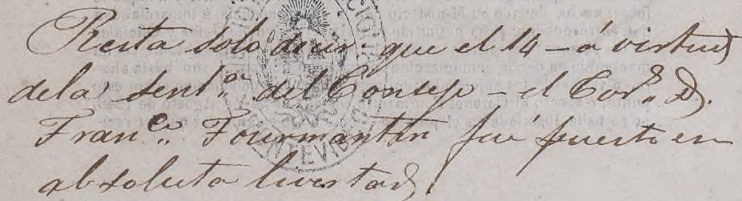 Resta solo decir: que el 14 - á vertud
dela sent.ª del Consejo - el Cor.l D.
Fran.co Fourmantin fue puesto en
absoluta livertad.